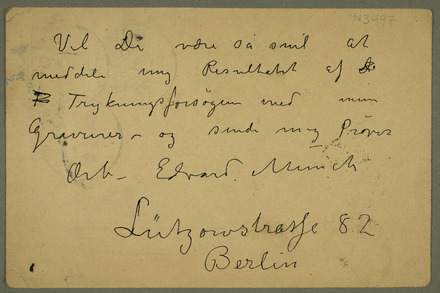 N3497
Vil De være så snil at
meddele mig Resultatet af
Trykningsforsögen med mine
Gravurer – og sende mig Pröver
Ærb – Edvard Munch
Lützowstrasse 82
Berlin